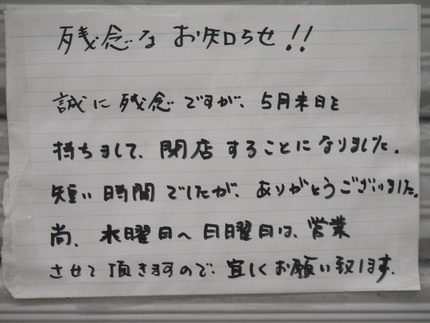 残念な お知らせ!!
誠に残念ですが、5月末日を
持ちまして、閉店することになりました。
短い時間でしたが、ありがとうございました。
尚、水曜日へ日曜日は、営業
させて頂きますので、宜しくお願い致します。